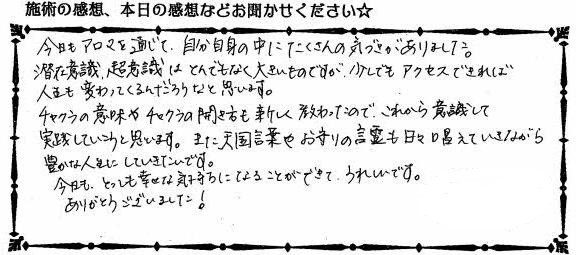 施術の感想、本日の感想などお聞かせください☆
今日もアロマを通じて、自分自身の中にたくさんの気づきがありました。
潜在意識、超意識はとんでもなく大きいものですが、少しでもアクセスできれば
人生も変わってくるんだろうなと思います。
チャクラの意味やチャクラの開き方も新しく教わったので、これから意識して
実践していこうと思います。また天国言葉やお守りの言霊も日々唱えていきながら
豊かな人生にしていきたいです。
今日も、とっても幸せな気持ちになることができて、うれしいです。
ありがとうございました!